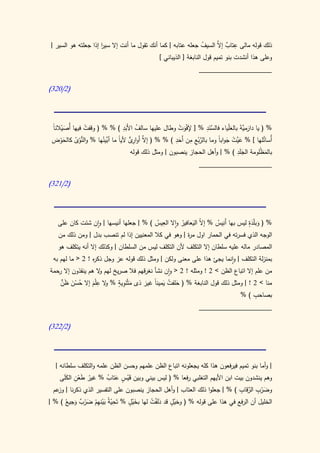 ذلك قوله مالى عِتابٌ إلاّ السيفُ جعله عتابه | كما أنك تقول ما أنت إلا سيرًا إذا جعلته هو السير |
وعلى هذا أنشدت بنو تميم قول النابغة [ الذبيانيّ ]
(320/2)
% ( يا دارَمَيَّةَ بالعلْياء فالسَّنَدِ % | أقْوَتْ وطال عليها سالفُ الأَبدِ ) % % ( وقفتُ فيها أُصَيْلالاً
أُسائلُها | % عَيَّتْ جَوابًا وما بالرَّبْعِ مِن أَحَدِ ) % % ( إلاّ أَوارِيَّ لأياً ما أُبَيِّنُها % والنُّؤْىَ كالحَوْضِ
بالمَظْلومةِ الجَلَدِ ) % | وأهلُ الحجاز ينصبون | ومثل ذلك قوله
(321/2)
% ( وبَلْدَةٍ ليس بها أَنيسُ % إلاّ اليَعافيرُ وإلا العِيسُ ) % | جعلها أنيسها | وإن شئت كان على
الوجه الذي فسرته في الحمار اول مرة | وهو في كلا المعنيين إذا لم تنصب بدل | ومن ذلك من
المصادر ماله عليه سلطان إلا التكلف لأن التكلف ليس من السلطان | وكذلك إلا أنه يتكلف هو
بمنزلة التكلف | وانما يجئ هذا على معنى ولكن | ومثل ذلك قوله عز وجل ذكره ! 2 < ما لهم به
من علم إلا اتباع الظن > 2 ! ومثله ! 2 < وإن نشأ نغرقهم فلا صريخ لهم ولا هم ينقذون إلا رحمة
منا > 2 ! | ومثل ذلك قول النابغة % ( حَلفتُ يَميناً غير ذى مَثْنَوِيةٍ % ولا عِلْمَ إلا حُسْنُ ظَنٍّ
بصاحبِ ) %
(322/2)
| وأما بنو تميم فيرفعون هذا كله يجعلونه اتباع الظن علمهم وحسن الظن علمه والتكلف سلطانه |
وهم ينشدون بيت ابن الأيهم التغلبى رفعا % ( ليس بينى وبين قَيْسٍ عتابُ % غيرُ طَعْنِ الكُلَى
وضَرْبِ الرِّقابِ ) % | جعلوا ذلك العتاب | وأهل الحجاز ينصبون على التفسير الذى ذكرنا | وزعم
الخليل أن الرفع في هذا على قوله % ( وخيْلٍ قد دَلَفْتُ لها بخَيْلٍ % تحِيَّةُ بَيْنِهِمْ ضَرْبٌ وَجيعُ ) % |